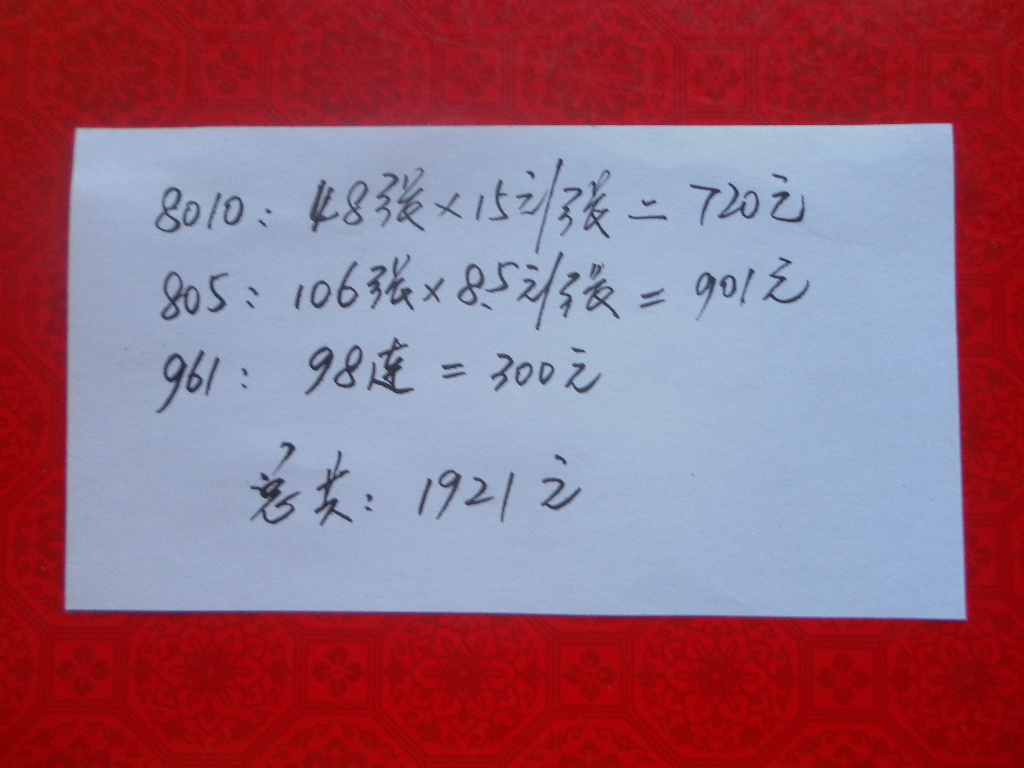 8010: 48张×15元/张=720元
805: 106张×8.5元/张=901元
961: 98连=300元
总共: 1921元